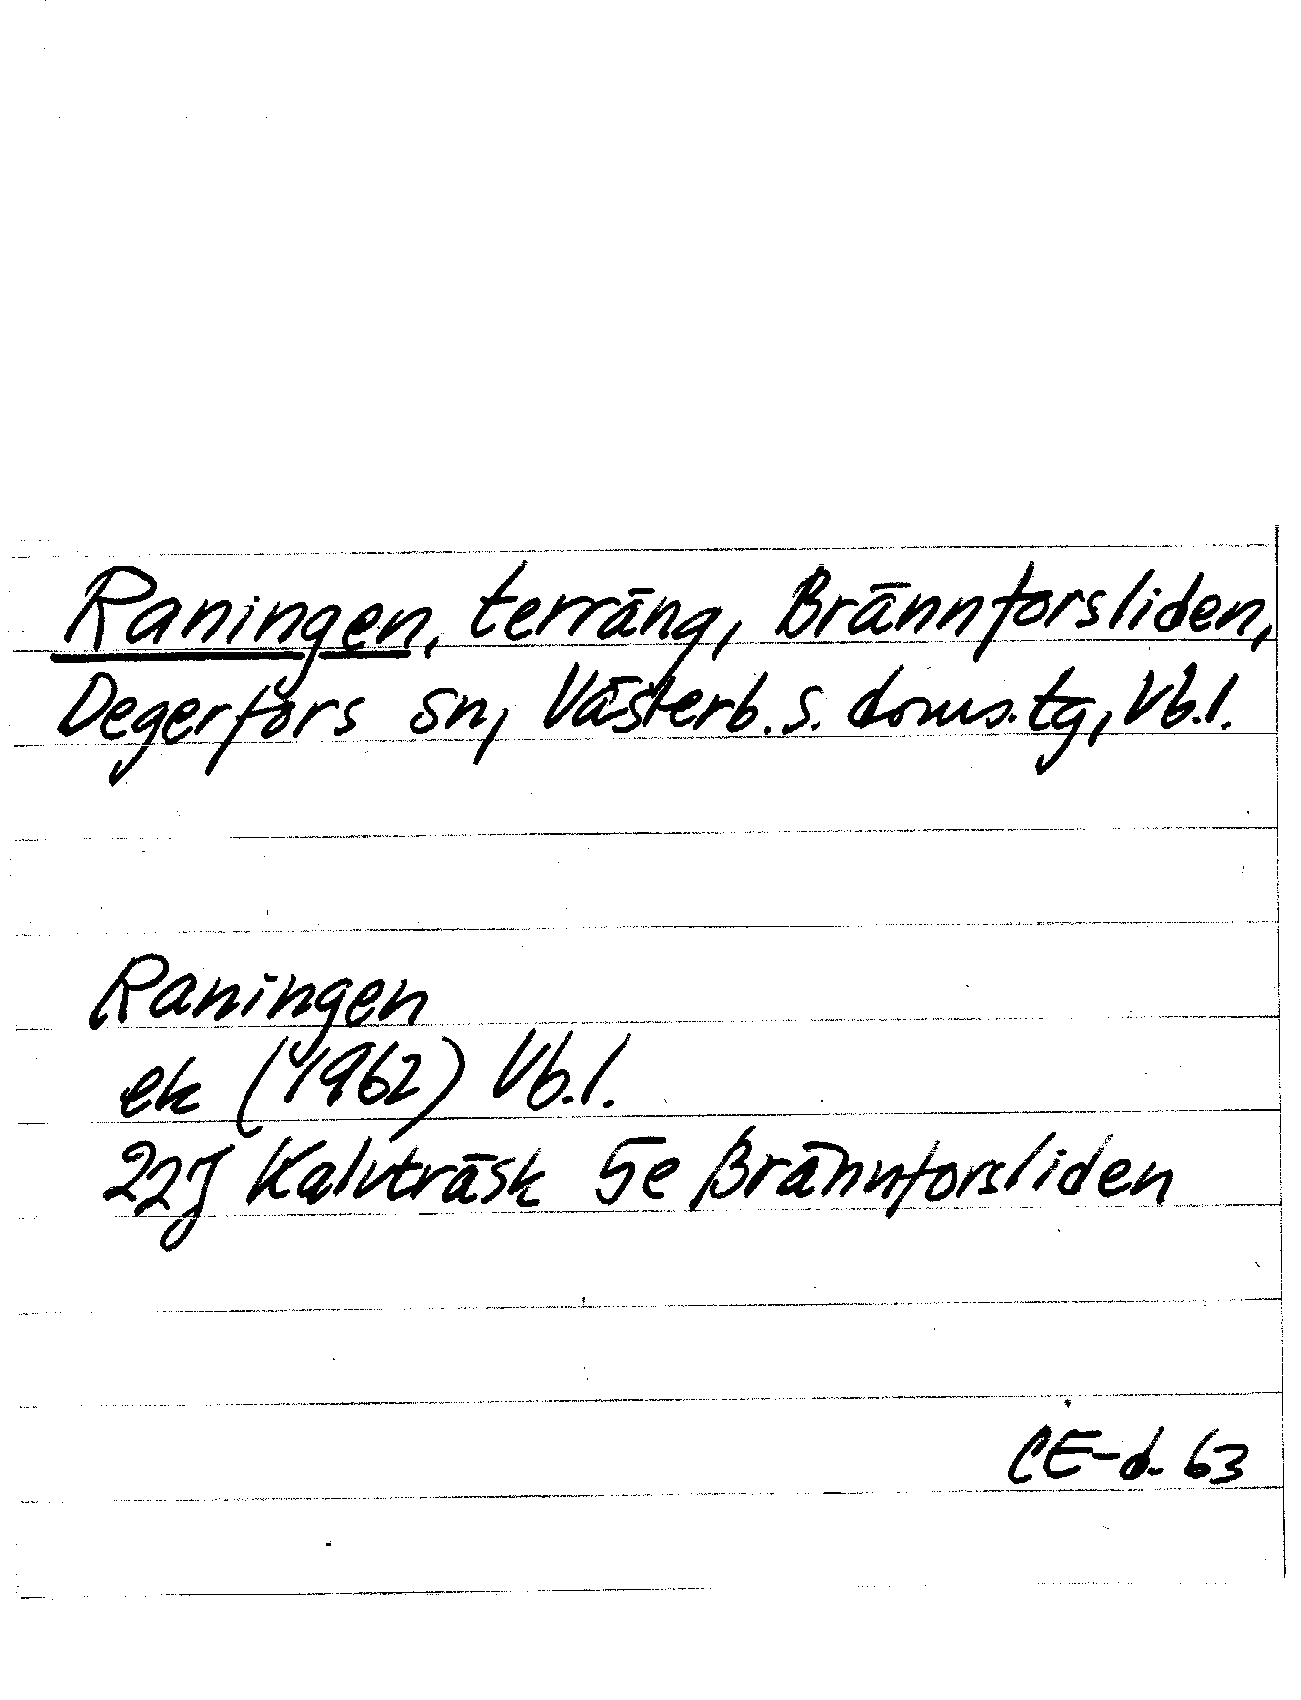 Raningen, terräng, Brännforsliden,
Degerfors sn, Västerb. s. doms.tg, Vb.l.
Raningen
ek (1962) Vb.l.
22J Kalvträsk 5e Brännforsliden
CE-d. 63